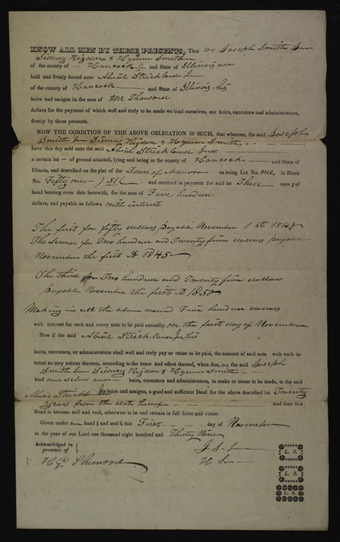 KNOW ALL MEN BY THESE PRESENTS, That we Joseph Smith Jun
Sidney Rigdon & Hyrum Smith
of the county of Hancock and State of Illinois are
held and firmly bound unto Abiel Strickland
of the county of Hancock and State of Illinois, his
heirs and assigns in the sum of One Thousand
dollars, for the payment of which well and truly to be made we bind ourselves, our heirs, executors and administrators,
firmly by these presents.
NOW THE CONDITION OF THE ABOVE OBLIGATION IS SUCH, that whereas, the said Joseph
Smith Jun Sidney Rigdon & Hyrum Smith
have this day sold unto the said Abiel Strickland
a certain lot of ground situated, lying and being in the county of Hancock and State of
Illinois, and described on the plat of the Town of Nauvoo as being Lot No. One, in Block
No. Fifty one 51 and received in payment for said lot Three notes of
hand bearing even date herewith, for the sum of Five hundred
dollars, and payable as follows with interest
The first for fifty dollars payable November 1st 1840
The Second for Two hundred and Twenty five dollars payable
November the first 1845
The third for Two hundred and Twenty five dollars
payable November the first 1850
Making in all the above named Five hundred
with interest for each and every note to be paid annually, on the first day of November
Now if the said Abiel Strickland
heirs, executors, or administrators shall well and truly pay or cause to be paid, the amount of said note with such interest as may accrue thereon, according to the tenor and effect thereof, when due, we the said Joseph
Smith Jun Sidney Rigdon & Hyrum Smith
bind our selves our heirs, executors and administrators, to make or cause to be made, to the said
Abiel Strickland his heirs and assigns, a good and sufficient Deed for the above described lot Twenty
years from the date hereof and then this
Bond to become null and void, otherwise to be and remain in full force and virtue.
Given under our hand and seal this First day of November
in the year of our Lord one thousand eight hundred and Thirty Nine
Acknowledged in
presence of
H. G. Sherwood
J S Jun
H Sm
L. S.
L. S.
L. S.